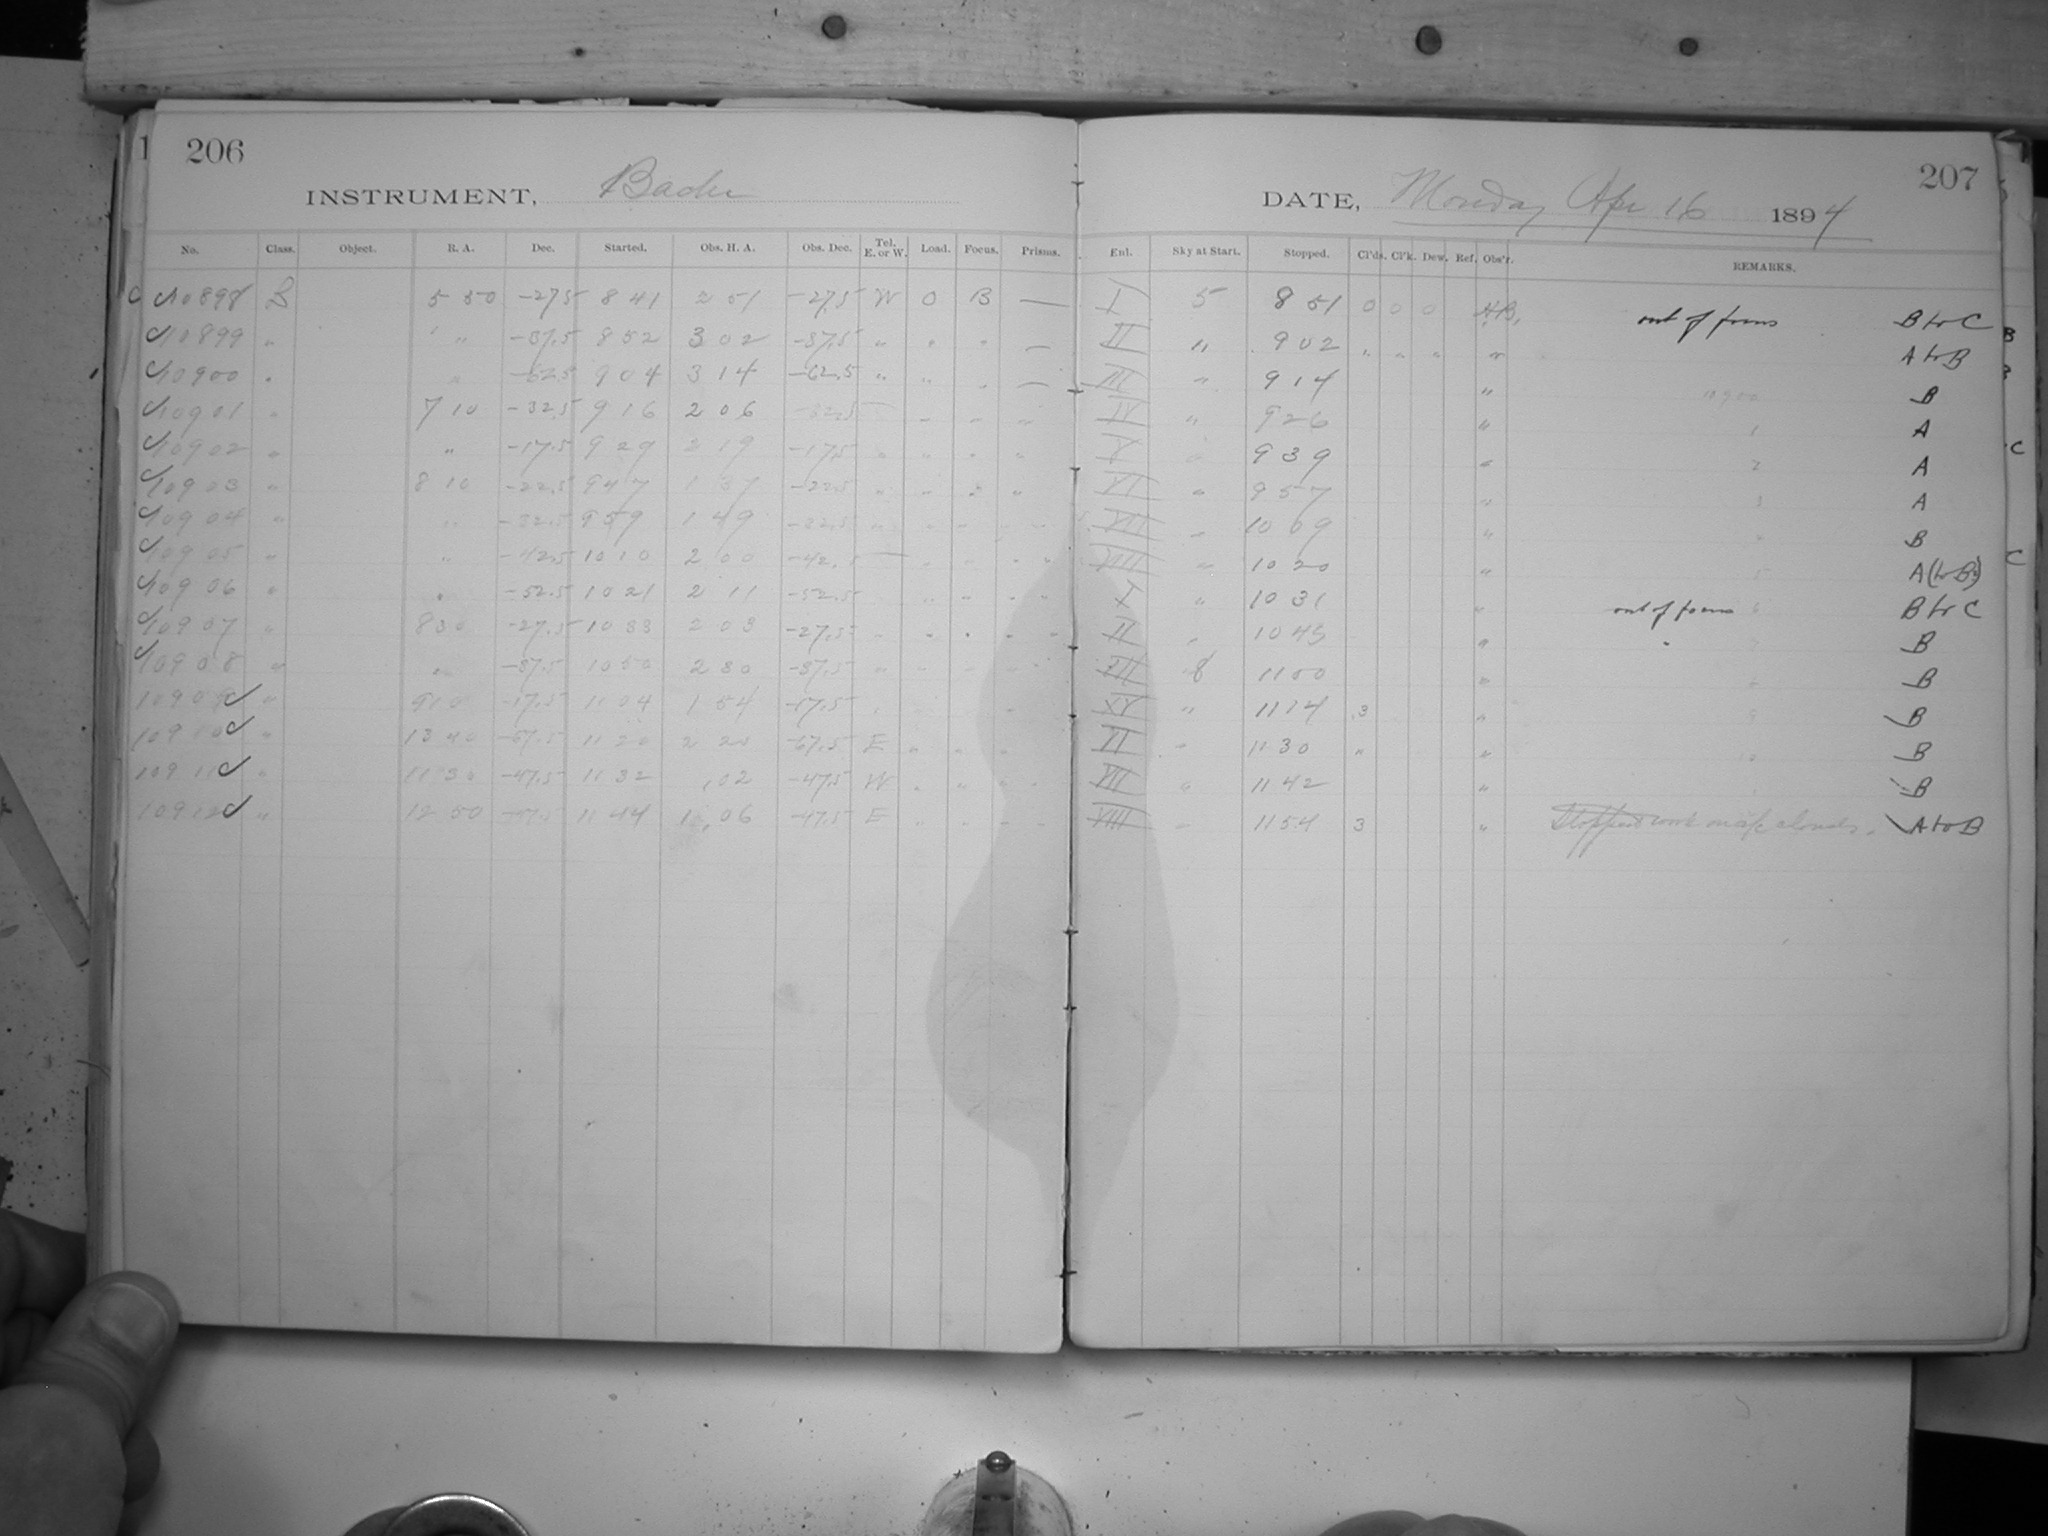 206
INSTRUMENT, Bache
No. Class. Object. R. A. Dec. Started. Obs. H. A. Obs. Dec. Tel. E. or W. Load. Focus. Prisms.
10898 B 5 50 -27.5 8 41 2 51 -27.5 W 0 B —
10899 " " -37.5 8 52 3 02 -37.5 " " " —
10900 " " -62.5 9 04 3 14 -62.5 " " " —
10901 " 7 10 -32.5 9 16 2 06 -32.5 " " "
10902 " " -17.5 9 29 2 19 -17.5 " " " "
10903 " 8 10 -22.5 9 47 1 37 -22.5 " " " "
10904 " " -32.5 9 59 1 49 -32.5 " " " "
10905 " " -42.5 10 10 2 00 -42.5 " " "
10906 " " -52.5 10 21 2 11 -52.5 " " "
10907 " 8 30 -27.5 10 33 2 03 -27.5 " " " "
10908 " " -37.5 10 50 2 20 -37.5 " " " "
10909 " 9 10 -17.5 11 04 1 54 -17.5 " " " "
10910 " 13 40 -67.5 11 20 2 20 -67.5 E " " "
10911 " 11 30 -47.5 11 32 , 02 -47.5 W " " "
10912 " 12 50 -47.5 11 44 1 06 -47.5 E " " "
207
DATE, Monday Apr 16 1894
Enl. Sky at Start. Stopped. Cl'ds. Cl'k. Dew. Ref. Obs'r. REMARKS.
I 5 8 51 0 0 0 out of focus B to C
II " 9 02 " " " " A to B
III " 9 14 " 10900 B
IV " 9 26 " 1 A
V " 9 39 " 2 A
VI " 9 57 " 3 A
VII " 10 09 " B
VIII " 10 20 " 5 A (to B)
I " 10 31 " out of focus 6 B to C
II " 10 43 " " B
III 8 11 00 " B
IV " 11 14 3 " 9 B
VI " 11 30 " " 10 B
VII " 11 42 " B
VIII " 11 54 3 " Stopped work on a/c clouds. A to B